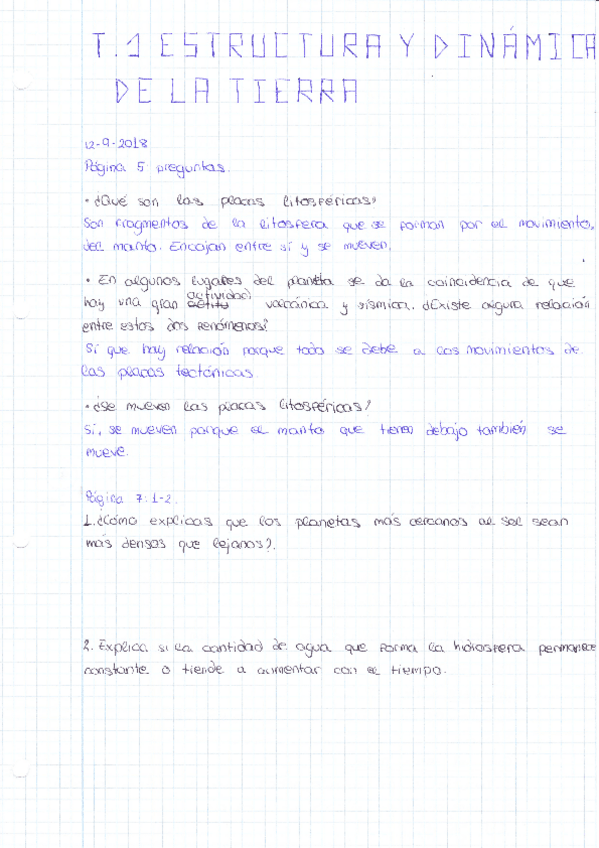 T.1 ESTRUCTURA Y DINÁMICA
DE LA TIERRA
12-9-2018
Página 5 preguntas.
· ¿Qué son las placas litosféricas?
Son fragmentos de la litosfera que se forman por el movimiento,
del manto. Encajan entre sí y se mueven.
· En algunos lugares del planeta se da la coincidencia de que
hay una gran actividad volcánica y sísmica. ¿Existe alguna relación
entre estos dos fenómenos?
Sí que hay relación porque todo se debe a los movimientos de
las placas tectónicas
· ¿Se mueven las placas litosféricas?
Sí, se mueven porque el manto que tienen debajo también se
mueve.
Página 7: 1-2.
1. ¿Cómo explicas que los planetas más cercanos al sol sean
más densos que lejanos?.
2. Explica si la cantidad de agua que forma la hidrosfera permanece
constante o tiende a aumentar con el tiempo.